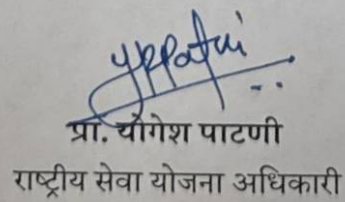 yppatni
प्रा. योगेश पाटणी
राष्ट्रीय सेवा योजना अधिकारी